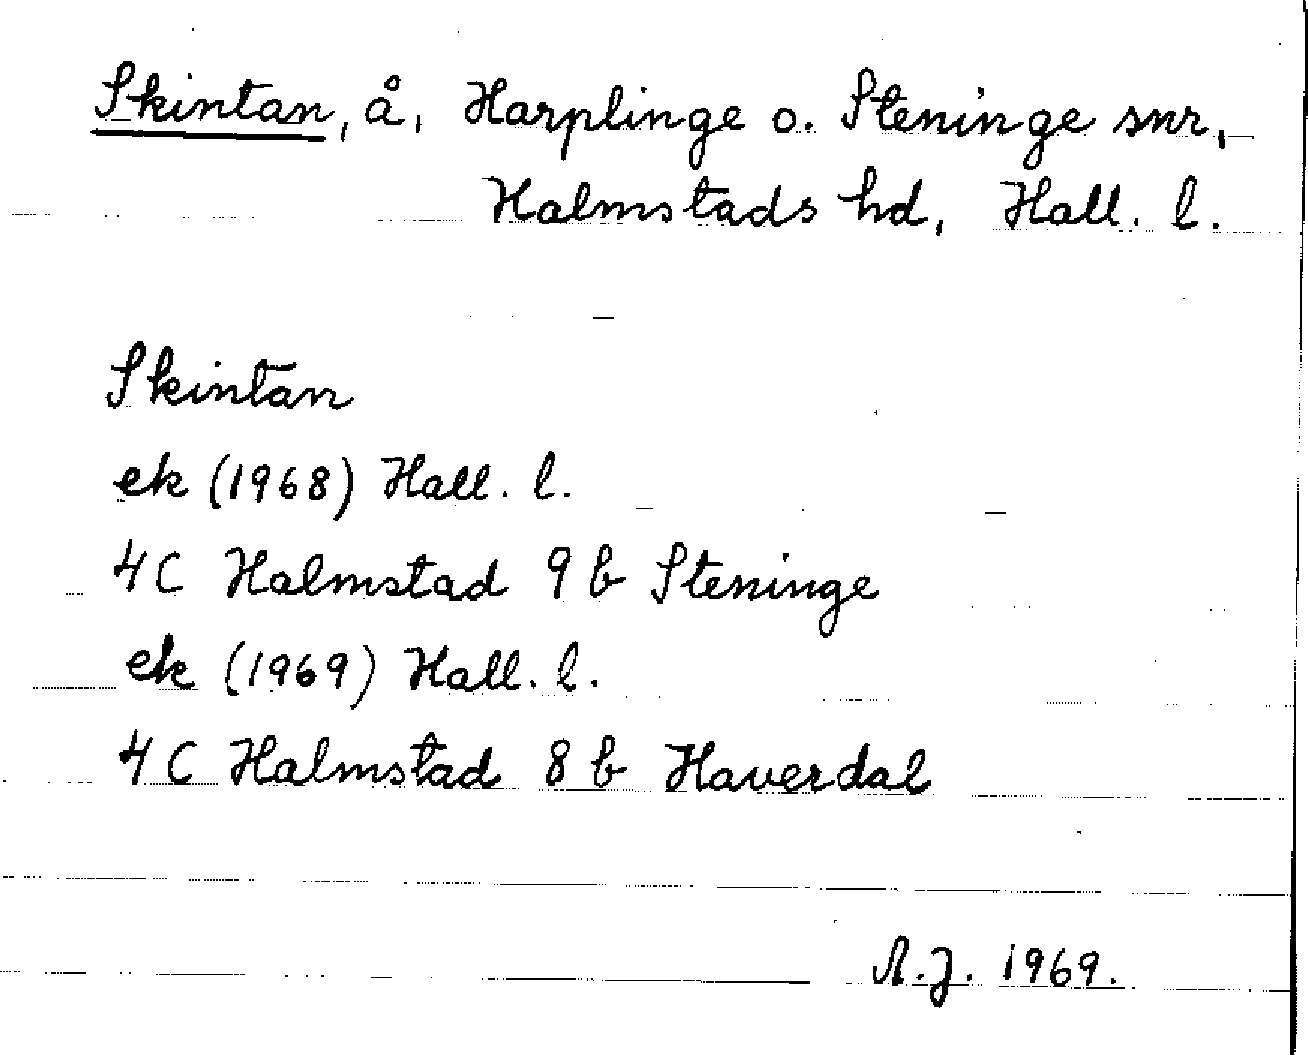 Skintan, å, Harplinge o. Steninge snr,
Halmstads hd, Hall. l.
Skintan
ek (1968) Hall. l.
4C Halmstad 9 b Steninge
ek (1969) Hall. l.
4C Halmstad 8 b Haverdal
A.J. 1969.